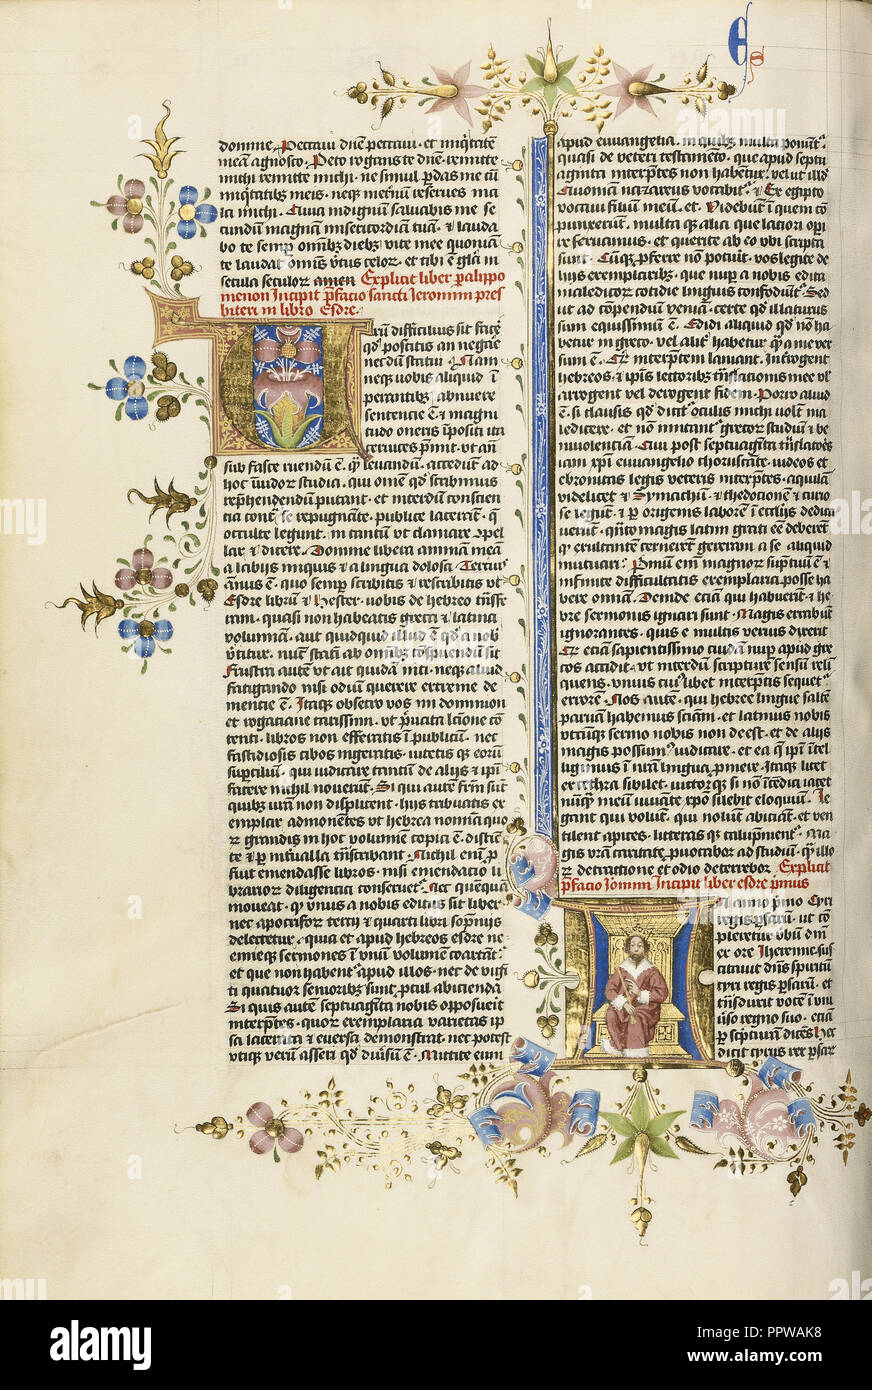 E s
domine Peccaui dñe peccaui · et iniq̃tatē
meā agnosco · Peto rogans te dñe · remitte
michi remitte michi · ne simul p̱das me cū
iniq̃tatibus meis · neqꝫ ineternū reserues ma
la michi · Quia indignū saluabis me se
cundum magnam misericordiā tuā · et lauda
bo te semꝑ omībꝫ diebꝫ vite mee quoniā
te laudat omīs v̓tus celoꝝ · et tibi ē gl̃ia in
secula seculoꝝ amen Explicit liber paralippo
menon Incipit p̃facio sancti Jeronimi pres
biteri in libro Esdre
Utrū difficilius sit facē
qd̓ poscitis an negare
necdū statui · Nam
neqꝫ uobis aliquid ī
perantibꝫ abnuere
sentencie ē · et magni
tudo oneris īpositi ita
ceruices p̃mit · vt añ
sub fasce ruendū ē · q̃ leuandū · accedūt ad
hoc īuidoꝝ studia · qui omē qd̓ scribimus
rep̃hendendū putant · et interdū conscien
cia contᵃ se repugnāte · publice lacerāt · q̃
occulte legunt · in tantū vt clamare ꝯpel
lar ⁊ dicere · Domine libera animam meā
a labijs iniquis et a lingua dolosa · Tercius
annus ē · quo semꝑ scribitis et rescribitis vt
Esdre librū ⁊ Hester · uobis de hebreo trāsfe
ram · quasi non habeatis greca ⁊ latina
volumina · aut quidquid illud ē qd̓ a nob̓
v̓titur · nō statī ab omībꝫ ꝯspuendū sit
Frustra autē vt ait quidā niti · neqꝫ aliud
fatigando nisi odiū querere extreme de
mencie ē · Itaqꝫ obsecro vos mi domnion
et rogaciane carissimi · vt p̓uata lcione cō
tenti · libros non efferatis ī publicū · nec
fastidiosis cibos ingeratis · uitetis qꝫ eoꝝ
suꝑciliū · qui iudicare tantū de alijs ⁊ ip̃i
facere nichil nouerūt · Si qui autē frm̃ sūt
quibꝫ nr̃a non displicent · hijs tribuatis ex
emplar admonētes vt hebrea nomina quo
ꝝ grandis in hoc volumine copia ē · distīc
te ⁊ ꝑ interualla trāscribant · Nichil eni ꝓ
fuit emendasse libros · nisi emendacio li
brarioꝝ diligencia conseruet᷑ · Nec quēquā
moueat · q̃ vnus a nobis editus sit liber ·
nec apocrifoꝝ tercij ⁊ quarti libri sopnijs
delectetur · quia et apud hebreos esdre ne
emieqꝫ sermones ī vnū volumē coartāt᷑ ·
et que non habent᷑ apud illos · nec de vigī
ti quatuor senioribꝫ sunt · ꝓcul abicienda
Si quis autē septuagīta nobis opposuerit
interp̃tes · quoꝝ exemplaria varietas ip̃
sa lacerata ⁊ euersa demonstrat · nec potest
vtiqꝫ verū asseri qd̓ diuersū ē · Mittite eum
apud ewangelia · in quibꝫ multa ponūt᷑ ·
quasi de veteri testamēto · que apud septu
aginta interp̃tes non habēt᷑ · velut illd̓
Quoniā nazareus vocabit᷑ · ⁊ Ex egipto
vocaui filium meū · et · Videbūt ī quem cō
punxerūt · multa qꝫ alia que laciori ope
re seruamus · et querite ab eo vbi scripta
sunt · Cūqꝫ p̓ferre nō potuit · vos legite de
hijs exemplaribꝫ · que nup̱ a nobis edita
maledicoꝝ cotidie linguis confodiūt᷑ · Sed
ut ad cōpendiū veniā · certe qd̓ illaturus
sum equissimū ē · Edidi aliquid qd̓ nō ha
betur in greco · vel alit᷑ habetur q̃ a me ver
sum ē · Qd̓ interp̃tem laniant · Interrogent
hebreos · ⁊ ip̃is auctoribꝫ trāslacionis mee vl̓
arrogent vel derogent fidem · Porro aliud
ē · si clausis qd̓ dicit᷑ oculis michi volūt ma
ledicere · et non imitant᷑ grecoꝝ studiū ⁊ be
niuolenciā · Qui post septuagīta trāslatores
iam xp̃i ewangelio choruscāte · iudeos et
ebionitas legis veteris interp̃tes · aquilā
videlicet ⁊ Symachū · ⁊ thedocionē ⁊ curio
se legūt · ⁊ ꝑ origenis laborē ī ecclijs dedica
uerūt · quāto magis latini grati eē deberēt
q̃ exultantē cernerēt greciam a se aliquid
mutuari · Primū enī magnoꝝ sumptuū ē ⁊
infinite difficultatis exemplaria posse ha
bere omnia · Deinde eciā qui habuerīt · ⁊ he
bre sermonis ignari sunt · Magis errabūt
ignorantes · quis e multis verius dixerit
Qd̓ eciā sapientissimo cuidā nup̱ apud gre
cos accidit · vt interdū scripture sensū relī
quens · vnius cuiꝰlibet interp̃tis sequet᷑
errorem · Nos autē · qui hebree lingue saltē
paruā habemus sciam · et latinus nobis
vtcūqꝫ sermo nobis non deest · et de alijs
magis possumꝰ iudicare · et ea q̃ ip̃i ītel
ligimus ī nr̃am lingua ꝓmere · Itaqꝫ licet
excethra sibilet · uictorqꝫ si nō ītendia iacet
nūqꝫ meū iuuāte xp̃o silebit eloquiū · Le
gant qui volūt · qui nolunt abiciāt · et ven
tilent apices · litteras qꝫ calūpnient᷑ · Ma
gis vr̃a caritate ꝓuocabor ad studiū · q̃ illo
ꝝ detractione et odio deterrebor Explicit
p̃facio Jeronimi Incipit liber esdre primus
In anno p̓mo Cyri
regis ꝑsarū · ut cō
pleretur v̓bū dñi
ex ore Iheremie · sus
citauit dñs spiritū
cyri regis ꝑsarū · et
trāsduxit vocē ī vni
uerso regno suo · eciā
ꝑ sc̓pturam dicēs Hec
dicit cyrus rex ꝑsarū
alamy
Image ID: PPWAK8
www.alamy.com